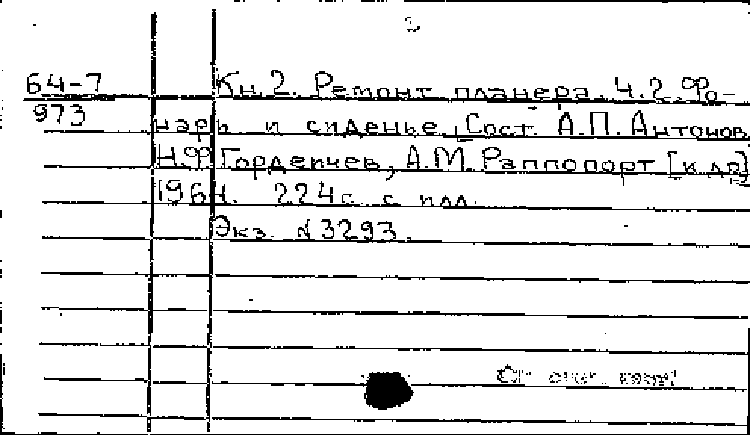 2
64-7
973
Кн.2. Ремонт планера. Ч.2. Фо-
нарь и сиденье. Сост. А.П. Антонов,
Н.Ф. Горденчев, А.М. Раппопорт [и др]
1964. 224с. с илл.
Экз. №3293.